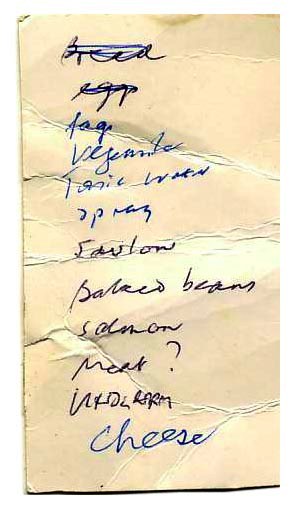 Bread
egg
fags
Vegemite
Tonic water
spray
Savlon
Baked beans
salmon
Meat?
cheese